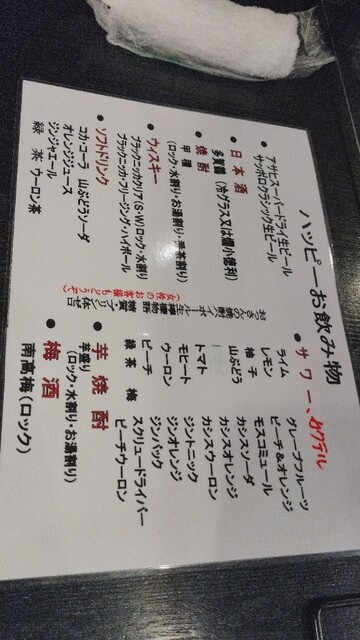 ハッピーお飲み物
アサヒスーパードライ生ビール
サッポロクラシック生ビール
日本酒
多賀鶴 (冷グラス又は燗小徳利)
焼酎
甲種
(ロック・水割り・お湯割り・茶割り)
ウィスキー
ブラックニッカクリア(S・W)ロック・水割り
ブラックニッカ・フリージング・ハイボール
ソフトドリンク
コカ・コーラ 山ぶどうソーダ
オレンジジュース
ジンジャエール
緑茶 ウーロン茶
サワー、カクテル
ライム
レモン
柚子
山ぶどう
トマト
モヒート
ウーロン
ピーチ
緑茶 梅
グレープフルーツ
ピーチ&オレンジ
モスコミュール
カシスソーダ
カシスオレンジ
カシスウーロン
ジントニック
ジンオレンジ
ジンバック
スクリュードライバー
ピーチウーロン
(女性のお客様もどうぞ)
芋焼酎
芋盛り
(ロック・水割り・お湯割り)
梅酒
南高梅(ロック)